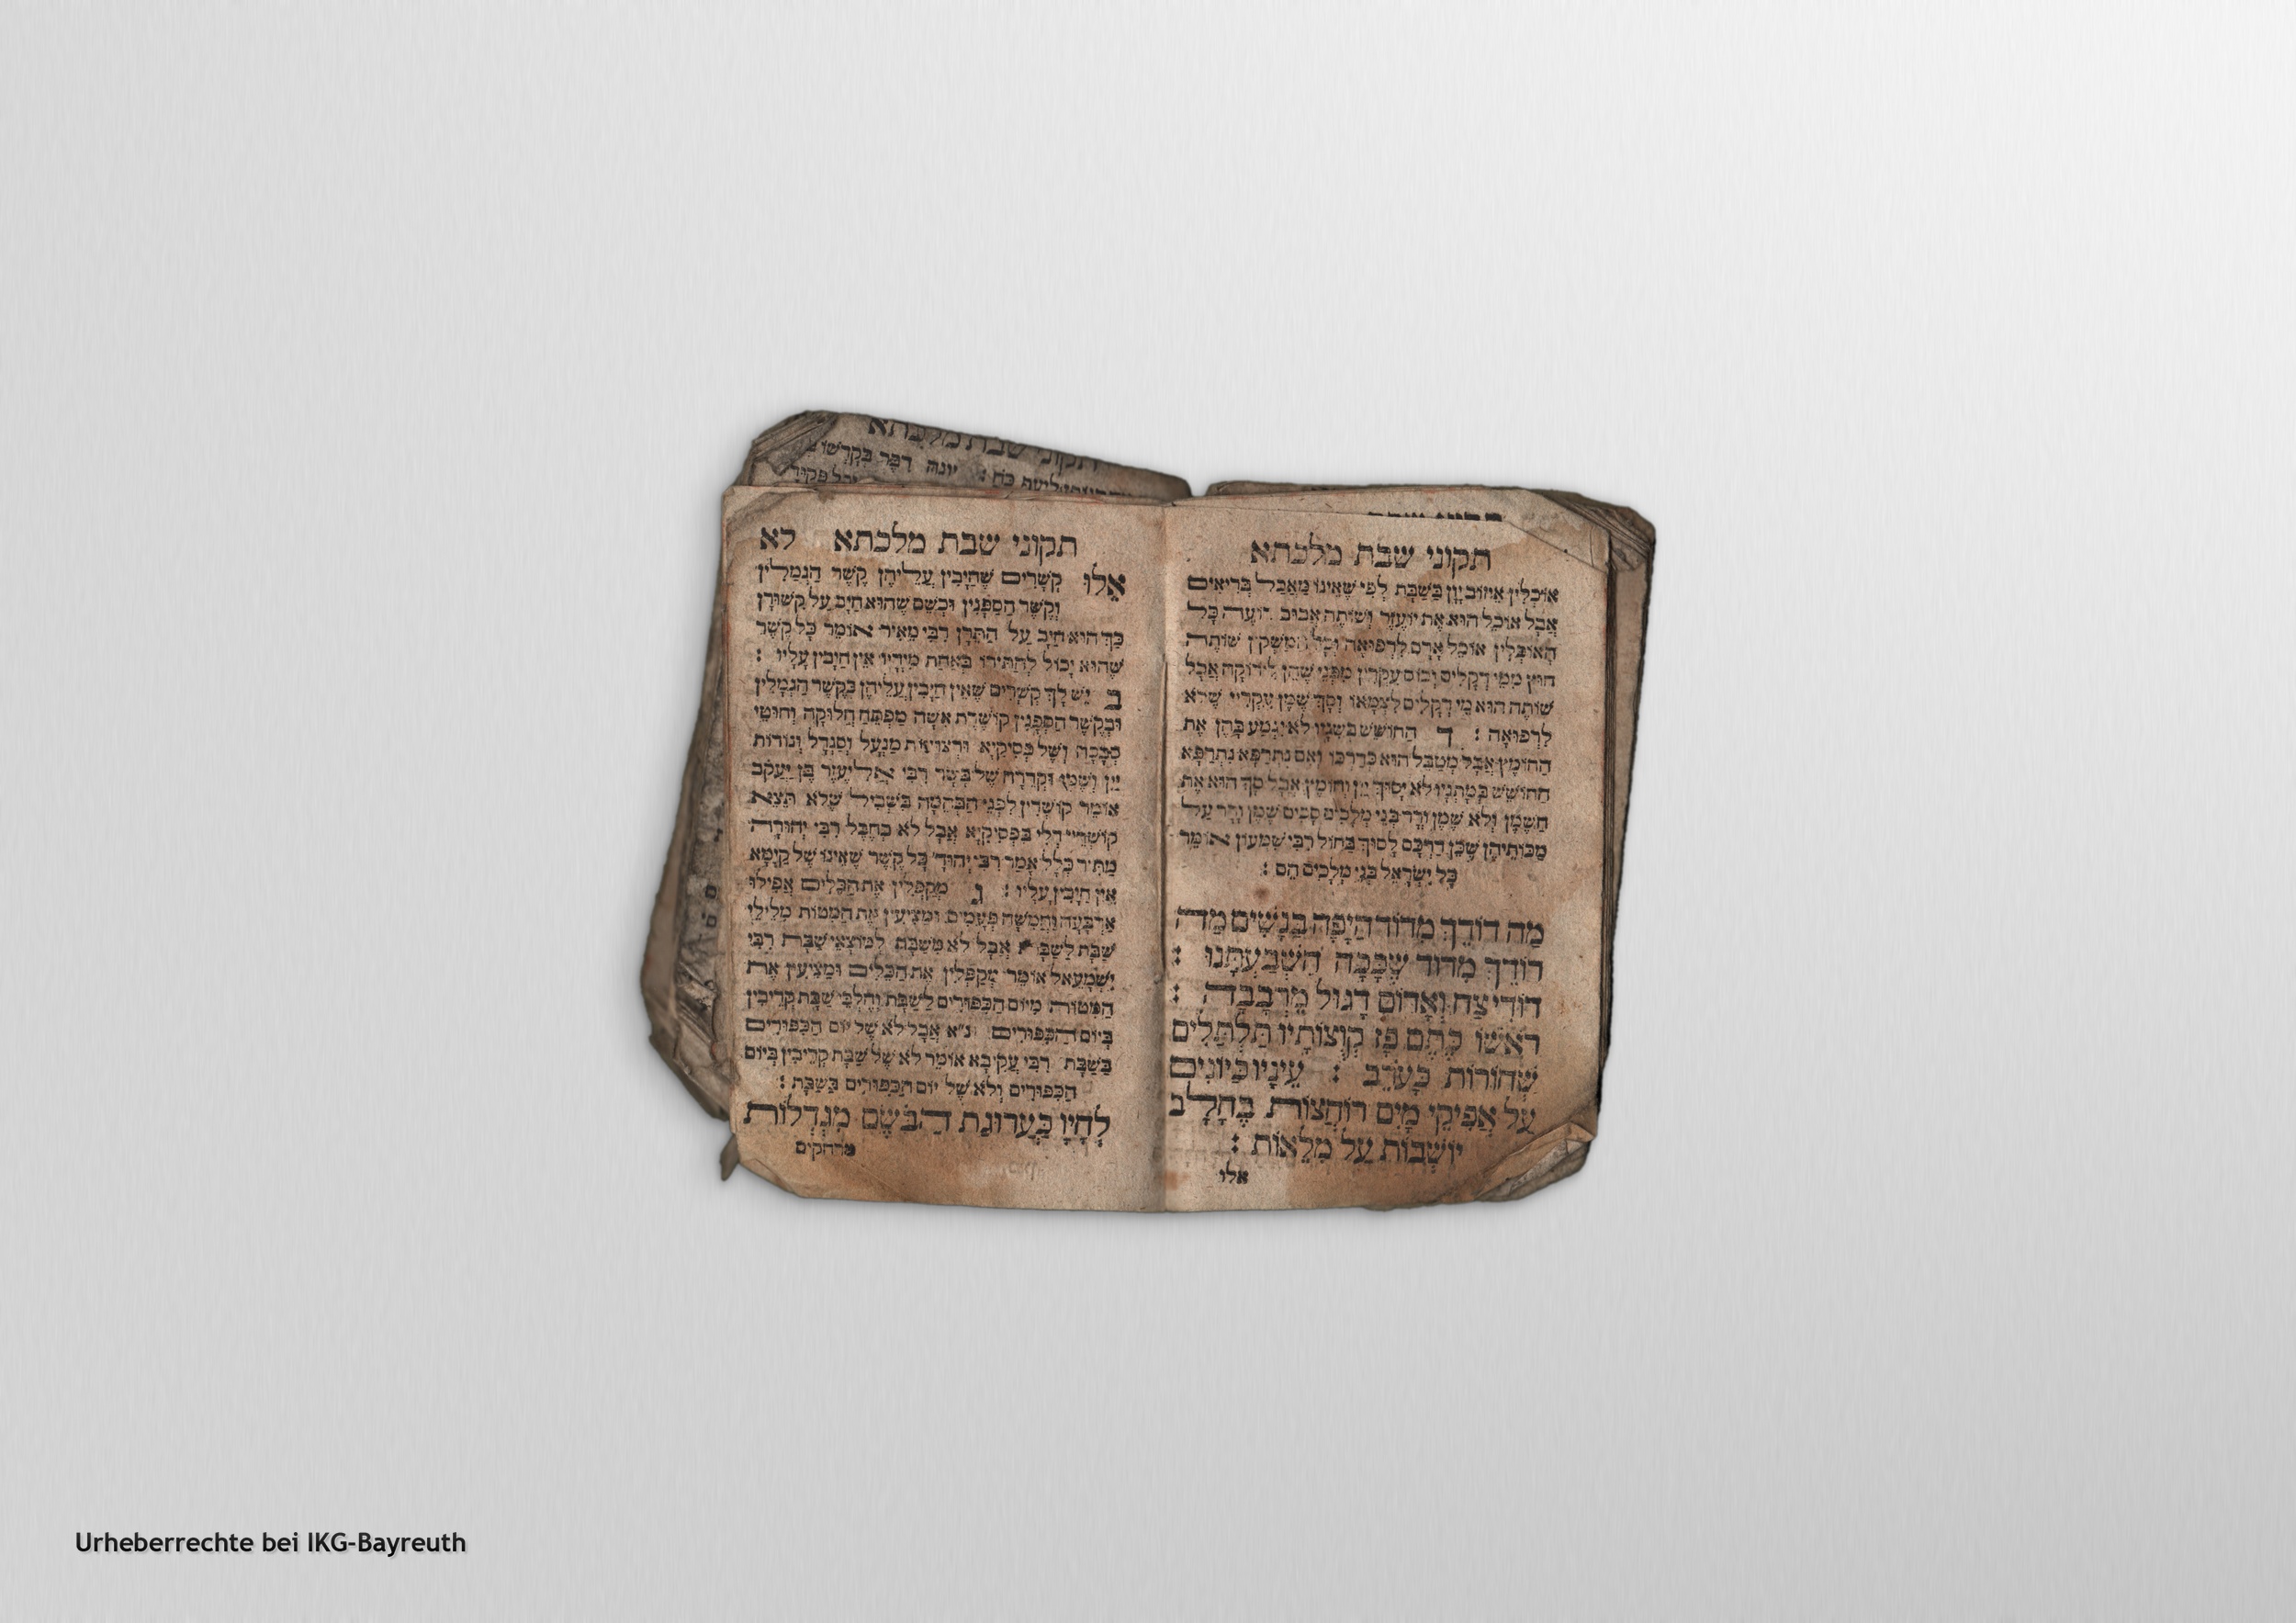 תקוני שבת מלכתא
אוכלין אזוב יון בשבת לפי שאינו מאכל בריאים
אבל אוכל הוא את יועזר ושותה אבוב רועה כל
האוכלין אוכל אדם לרפואה וכל המשקין שותה
חוץ ממי דקלים וכוס עקרין מפני שהן לירוקה אבל
שותה הוא מי דקלים לצמאו וסך שמן עקרין שלא
לרפואה : ד החושש בשניו לא יגמע בהן את
החומץ אבל מטבל הוא כדרכו ואם נתרפא נתרפא
החושש במתניו לא יסוך יין וחומץ אבל סך הוא את
השמן ולא שמן ורד בני מלכים סכים שמן ורד על
מכותיהן שכן דרכם לסוך בחול רבי שמעון אומר
כל ישראל בני מלכים הם :
מה דודך מדוד היפה בנשים מה
דודך מדוד שככה השבעתנו :
דודי צח ואדום דגול מרבבה :
ראשו כתם פז קוצותיו תלתלים
שחורות כעורב : עיניו כיונים
על אפיקי מים רוחצות בחלב
יושבות על מלאות :
אלו
תקוני שבת מלכתא לא
אלו קשרים שחייבין עליהן קשר הגמלין
וקשר הספנין וכשם שהוא חייב על קשורן
כך הוא חיב על התרן רבי מאיר אומר כל קשר
שהוא יכול להתירו באחת מידיו אין חיבין עליו :
ב יש לך קשרים שאין חיבין עליהן כקשר הגמלין
ובקשר הספנין קושרת אשה מפתח חלוקה וחוטי
סבכה ושל פסיקיא ורצועות מנעל וסנדל ונודות
יין ושמן וקדרה של בשר רבי אליעזר בן יעקב
אומר קושרין לפני הבהמה בשביל שלא תצא
קושרין דלי בפסיקיא אבל לא בחבל רבי יהודה
מתיר כלל אמר רבי יהוד' כל קשר שאינו של קימא
אין חיבין עליו : ג מקפלין את הכלים אפילו
ארבעה וחמשה פעמים ומציעין את המטות מלילי
שבת לשבת אבל לא משבת למוצאי שבת רבי
ישמעאל אומר מקפלין את הכלים ומציעין את
המטות מיום הכפורים לשבת וחלבי שבת קריבין
ביום הכפורים נ"א אבל לא של יום הכפורים
בשבת רבי עקיבא אומר לא של שבת קריבין ביום
הכפורים ולא של יום הכפורים בשבת :
לחיו כערוגת הבשם מגדלות
מרחקים
תקוני שבת מלכתא
Urheberrechte bei IKG-Bayreuth